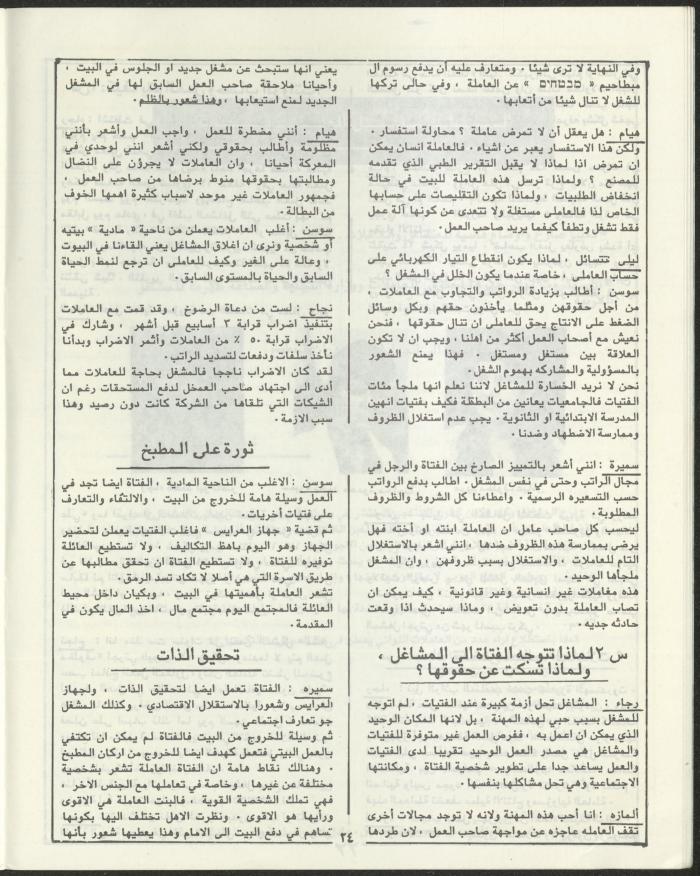 وفي النهاية لا ترى شيئا . ومتعارف عليه أن يدفع رسوم ال
مبطاحيم « מבטחים » عن العاملة ، وفي حالى تركها
للشغل لا تنال شيئا من أتعابها .
هيام : هل يعقل أن لا تمرض عاملة ؟ محاولة استفسار .
ولكن هذا الاستفسار يعبر عن اشياء . فالعاملة انسان يمكن
ان تمرض اذا لماذا لا يقبل التقرير الطبي الذي تقدمه
للمصنع ؟ ولماذا ترسل هذه العاملة للبيت في حالة
انخفاض الطلبيات ، ولماذا تكون التقليصات على حسابها
الخاص لذا فالعاملى مستغلة ولا تتعدى عن كونها آلة عمل
فقط تشغل وتطفأ كيفما يريد صاحب العمل .
ليلى تتسائل ، لماذا يكون انقطاع التيار الكهربائي على
حساب العاملى ، خاصة عندما يكون الخلل في المشغل ؟
سوسن : أطالب بزيادة الرواتب والتجاوب مع العاملات ،
من أجل حقوقهن ومثلما يأخذون حقهم وبكل وسائل
الضغط على الانتاج يحق للعاملى ان تنال حقوقها ، فنحن
نعيش مع أصحاب العمل أكثر من اهلنا ، ويجب ان لا تكون
العلاقة بين مستغل ومستغل . فهذا يمنع الشعور
بالمسؤولية والمشاركه بهموم الشغل .
نحن لا نريد الخسارة للمشاغل لاننا نعلم انها ملجأ مئات
الفتيات فالجامعيات يعانين من البطالة فكيف بفتيات انهين
المدرسة الابتدائية او الثانوية . يجب عدم استغلال الظروف
وممارسة الاضطهاد وضدنا .
سميرة : انني أشعر بالتمييز الصارخ بين الفتاة والرجل في
مجال الراتب وحتى في نفس المشغل . اطالب بدفع الرواتب
حسب التسعيره الرسمية . واعطاءنا كل الشروط والظروف
المطلوبة .
ليحسب كل صاحب عامل ان العاملة ابنته او أخته فهل
يرضى بممارسة هذه الظروف ضدها ، انني اشعر بالاستغلال
التام للعاملات ، والاستغلال بسبب ظروفهن ، وان المشغل
ملجأها الوحيد .
هذه مغاملات غير انسانية وغير قانونية ، كيف يمكن ان
تصاب العاملة بدون تعويض ، وماذا سيحدث اذا وقعت
حادثه جديه .
س ٢ لماذا تتوجه الفتاة الى المشاغل ،
ولماذا تسكت عن حقوقها ؟
رجاء : المشاغل تحل أزمة كبيرة عند الفتيات ، لم اتوجه
للمشغل بسبب حبي لهذه المهنة ، بل لانها المكان الوحيد
الذي يمكن ان اعمل به ، ففرص العمل غير متوفرة للفتيات
والمشاغل هي مصدر العمل الوحيد تقريبا لدى الفتيات
والعمل يساعد جدا على تطوير شخصية الفتاة ، ومكانتها
الاجتماعية وهي تحل مشاكلها بنفسها .
ألمازه : انا أحب هذه المهنة ولانه لا توجد مجالات أخرى
تقف العامله عاجزه عن مواجهة صاحب العمل . لان طردها
يعني انها ستبحث عن مشغل جديد او الجلوس في البيت ،
وأحيانا ملاحقة صاحب العمل السابق لها في المشغل
الجديد لمنع استيعابها ، وهذا شعور بالظلم .
هيام : أنني مضطرة للعمل ، واجب العمل وأشعر بأنني
مظلومة وأطالب بحقوقي ولكني أشعر انني لوحدي في
المعركة أحيانا ، وان العاملات لا يجرؤن على النضال
ومطالبتها بحقوقها منوط برضاها من صاحب العمل ،
فجمهور العاملات غير موحد لاسباب كثيرة اهمها الخوف
من البطالة .
سوسن : أغلب العاملات يعملن من ناحية « مادية » بيتيه
أو شخصية ونرى ان اغلاق المشاغل يعني القاءنا في البيوت
، وعالة على الغير وكيف للعاملى ان ترجع لنمط الحياة
السابق والحياة بالمستوى السابق .
نجاح : لست من دعاة الرضوخ ، وقد قمت مع العاملات
بتنفيذ اضراب قرابة ٣ أسابيع قبل أشهر ، وشارك في
الاضراب قرابة ٥٠ ٪ من العاملات وأثمر الاضراب وبدأنا
نأخذ سلفات ودفعات لتسديد الراتب .
لقد كان الاضراب ناجحا فالمشغل بحاجة للعاملات مما
أدى الى اجتهاد صاحب العمخل لدفع المستحقات رغم ان
الشيكات التي تلقاها من الشركة كانت دون رصيد وهذا
سبب الازمة .
ثورة على المطبخ
سوسن : الاغلب من الناحية المادية ، الفتاة ايضا تجد في
العمل وسيلة هامة للخروج من البيت ، والالتقاء والتعارف
على فتيات أخريات .
ثم قضية « جهاز العرايس » فاغلب الفتيات يعملن لتحضير
الجهاز وهو اليوم باهظ التكاليف ، ولا تستطيع العائلة
توفيره للفتاة ، ولا تستطيع الفتاة ان تحقق مطالبها عن
طريق الاسرة التي هي أصلا لا تكاد تسد الرمق .
تشعر العاملة بأهميتها في البيت ، وبكيان داخل محيط
العائلة فالمجتمع اليوم مجتمع مال ، اخذ المال يكون في
المقدمة .
تحقيق الذات
سميره : الفتاة تعمل ايضا لتحقيق الذات ، ولجهاز
العرايس وشعورا بالاستقلال الاقتصادي . وكذلك المشغل
جو تعارف اجتماعي .
ثم وسيلة للخروج من البيت فالفتاة لم يمكن ان تكتفي
بالعمل البيتي فتعمل كهدف ايضا للخروج من اركان المطبخ
. وهنالك نقاط هامة ان الفتاة العاملة تشعر بشخصية
مختلفة عن غيرها ، وخاصة في تعاملها مع الجنس الاخر ،
فهي تملك الشخصية القوية ، فالبنت العاملة هي الاقوى
ورأيها هو الاقوى . ونظرت الاهل تختلف اليها بكونها
تساهم في دفع البيت الى الامام وهذا يعطيها شعور بأنها
٢٤